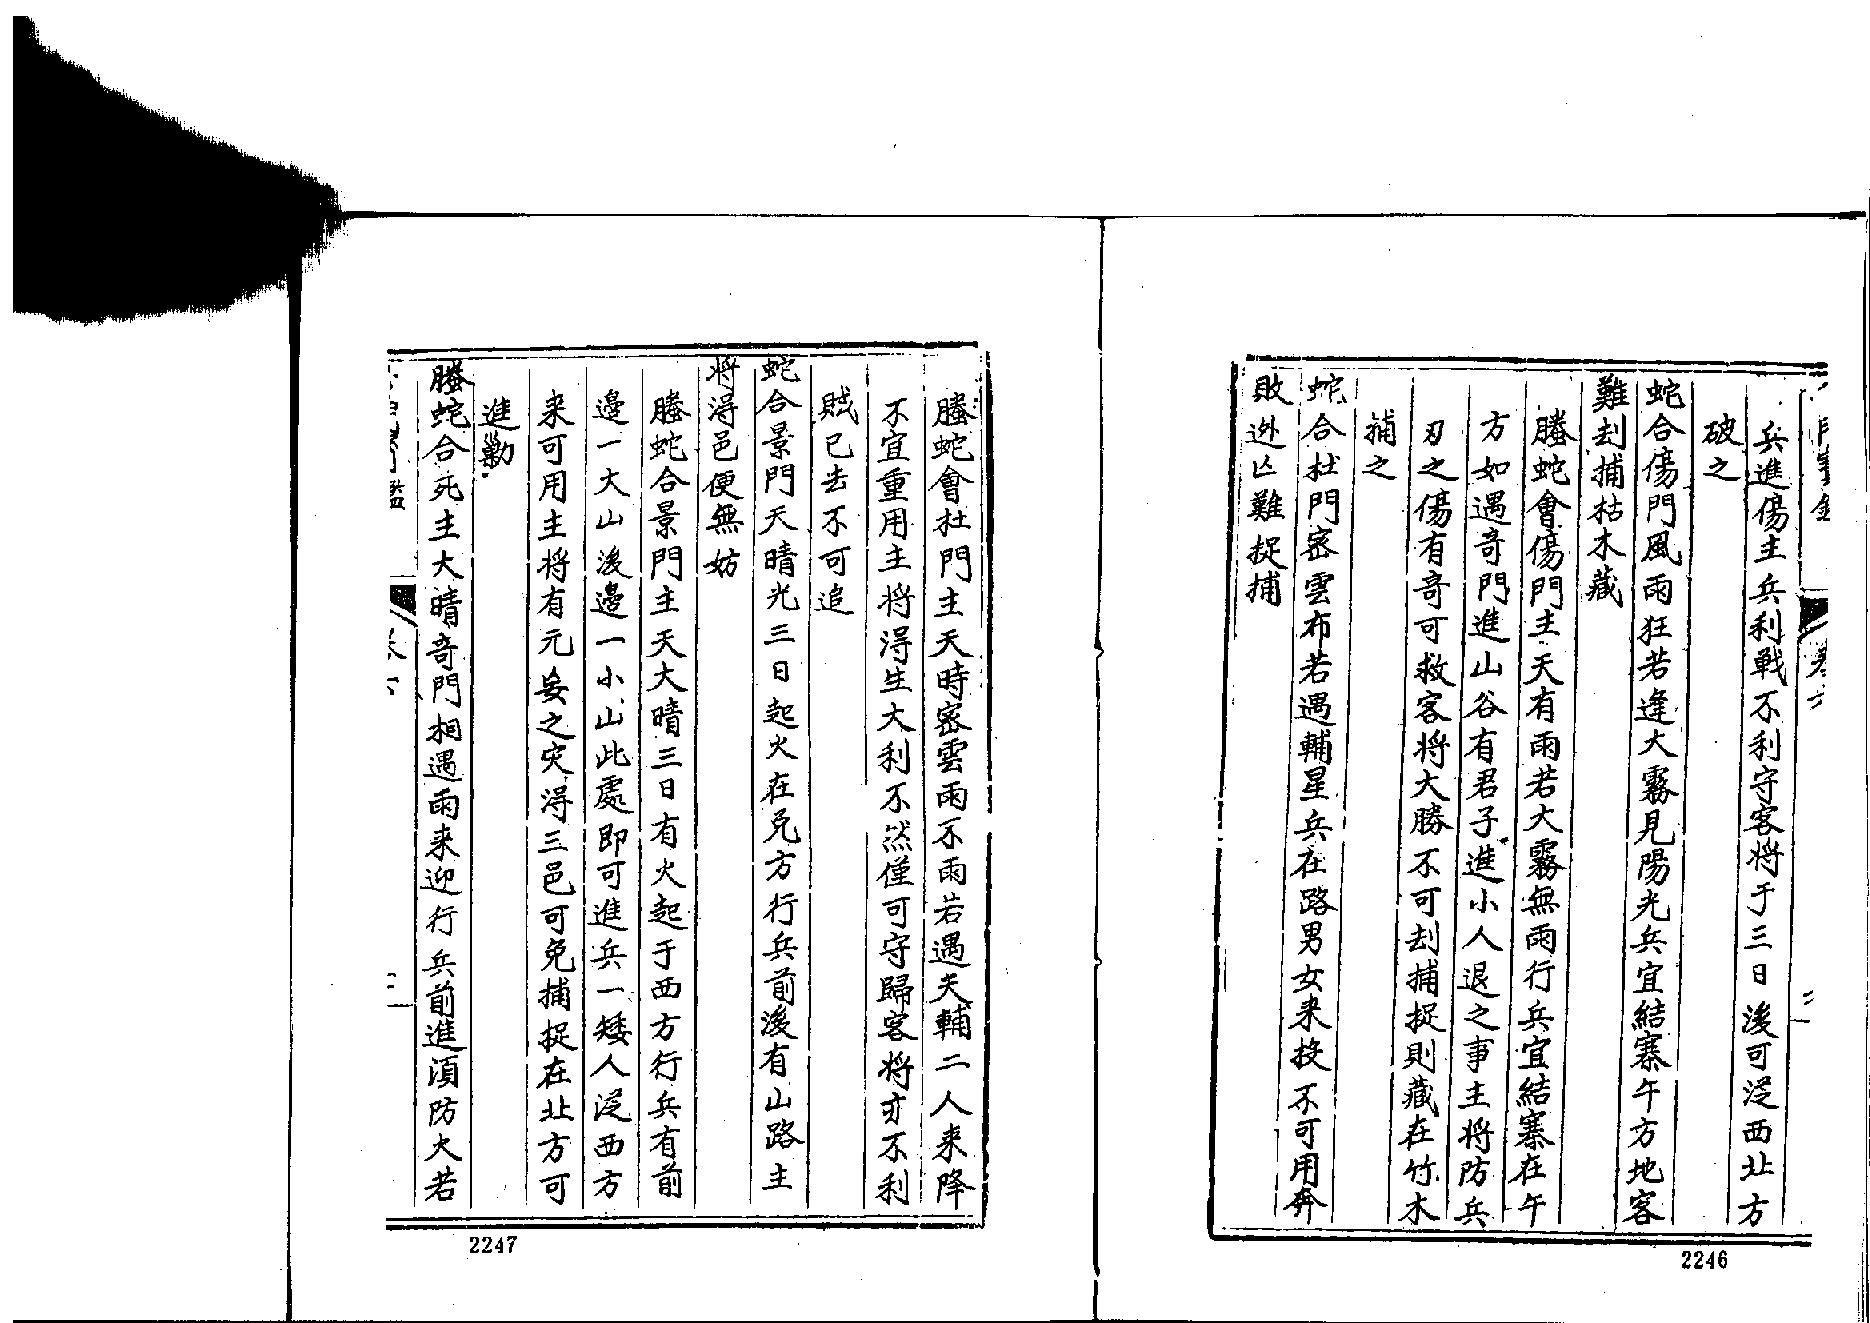 兵進傷主兵利戰不利守客将于三日後可從西北方
破之
蛇合傷門風雨狂若逢大霧見陽光兵宜結寨午方地客
難刦捕枯木藏
螣蛇會傷門主天有雨若大霧無雨行兵宜結寨在午
方如遇奇門進山谷有君子進小人退之事主将防兵
刃之傷有奇可救客将大勝不可刦捕捉則藏在竹木
捕之
蛇合杜門密雲布若遇輔星兵在路男女来投不可用奔
敗逊亡難捉捕
2246
螣蛇會杜門主天時密雲雨不雨若遇天輔二人来降
不宜重用主将得生大利不然僅可守歸客将亦不利
賊已去不可追
蛇合景門天晴光三日起火在兑方行兵前後有山路主
将得邑便無妨
螣蛇合景門主天大晴三日有火起于西方行兵有前
邊一大山後邊一小山此處即可進兵一矮人從西方
来可用主将有元妾之灾得三邑可免捕捉在北方可
進勦
螣蛇合死主大晴奇門相遇雨来迎行兵前進須防火若
2247